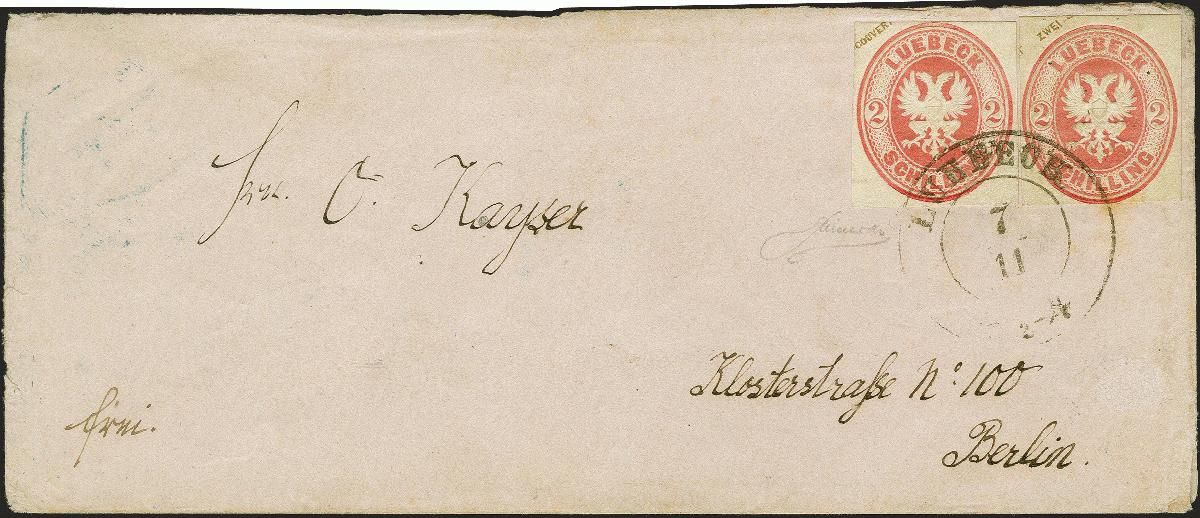 COUVERT
LUEBECK
2 2
SCHILLING
ZWEI
LUEBECK
2 2
SCHILLING
LUEBECK
7
11
2-
C. Kayser
Klosterstraße No. 100
Berlin.
frei.